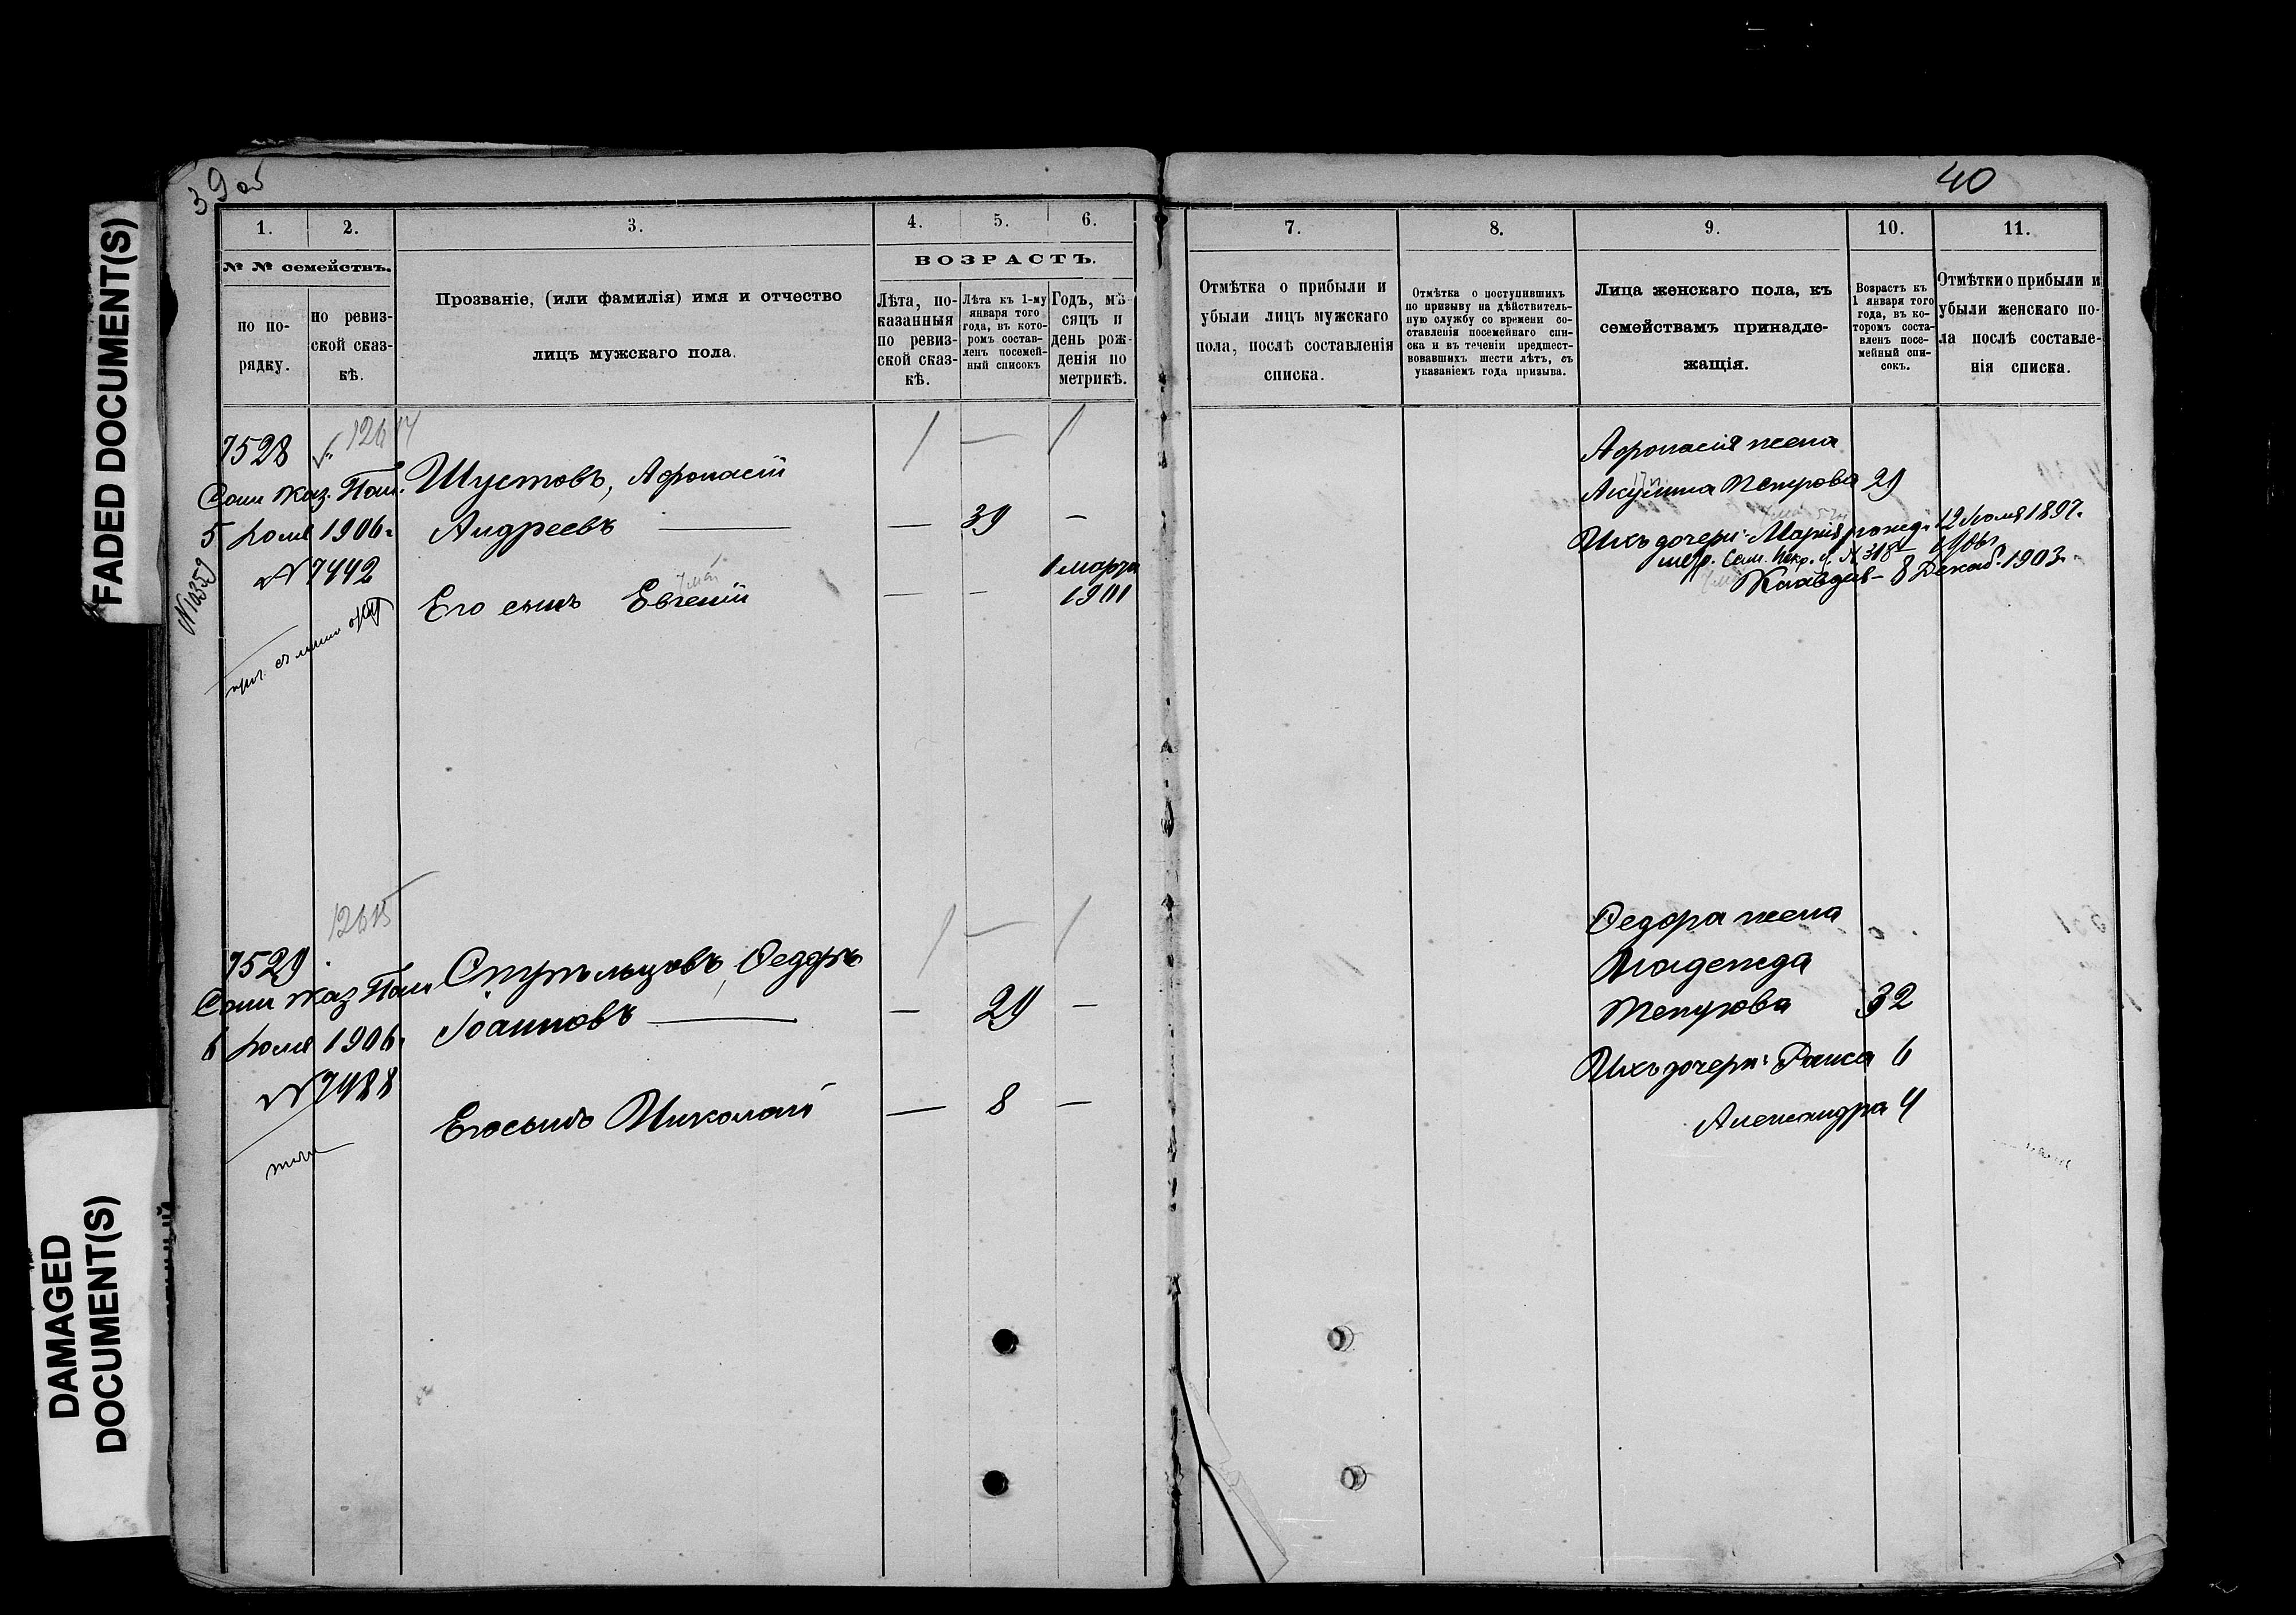 FADED DOCUMENT(S)
DAMAGED
DOCUMENT(S)
39 об
1.
2.
3.
4.
5.
6.
№ № семействъ.
по по-
рядку.
по ревиз-
ской сказ-
кѣ.
Прозваніе, (или фамилія) имя и отчество
лицъ мужскаго пола.
ВОЗРАСТЪ.
Лѣта, по-
казанныя
по ревиз-
ской сказ-
кѣ.
Лѣта къ 1-му
января того
года, въ кото-
ромъ состав-
ленъ посемей-
ный списокъ
Годъ, мѣ-
сяцъ и
день рож-
денія по
метрикѣ.
7528
12614
Сам. Каз. Пал.
5 Іюля 1906 г.
№ 7442
№ 10359
Шустовъ, Афонасій
Андреевъ — 39 —
Его сынъ Евгеній — — 1 марта
1901
12615
7529
Сам Каз Пал
6 Іюля 1906 г.
№ 7488
Стрѣльцовъ, Федоръ
Іоанновъ — 29 —
Его сынъ Николай — 8 —
40
7.
8.
9.
10.
11.
Отмѣтка о прибыли и
убыли лицъ мужскаго
пола, послѣ составленія
списка.
Отмѣтка о поступившихъ
по призыву на дѣйствитель-
ную службу со времени со-
ставленія посемейнаго спи-
ска и въ теченіи предшест-
вовавшихъ шести лѣтъ, съ
указаніемъ года призыва.
Лица женскаго пола, къ
семействамъ принадле-
жащія.
Возрастъ къ
1 января того
года, въ ко-
торомъ соста-
вленъ посе-
мейный спи-
сокъ.
Отмѣтки о прибыли и
убыли женскаго по-
ла послѣ составле-
нія списка.
Афонасія жена
Акулина Петрова 29
Ихъ дочери: Марія рожд. 12 Іюля 1897.
Клавдія – 8 Декаб. 1903
Федора жена
Надежда
Петрова 32
Ихъ дочери: Раиса 6
Александра 4